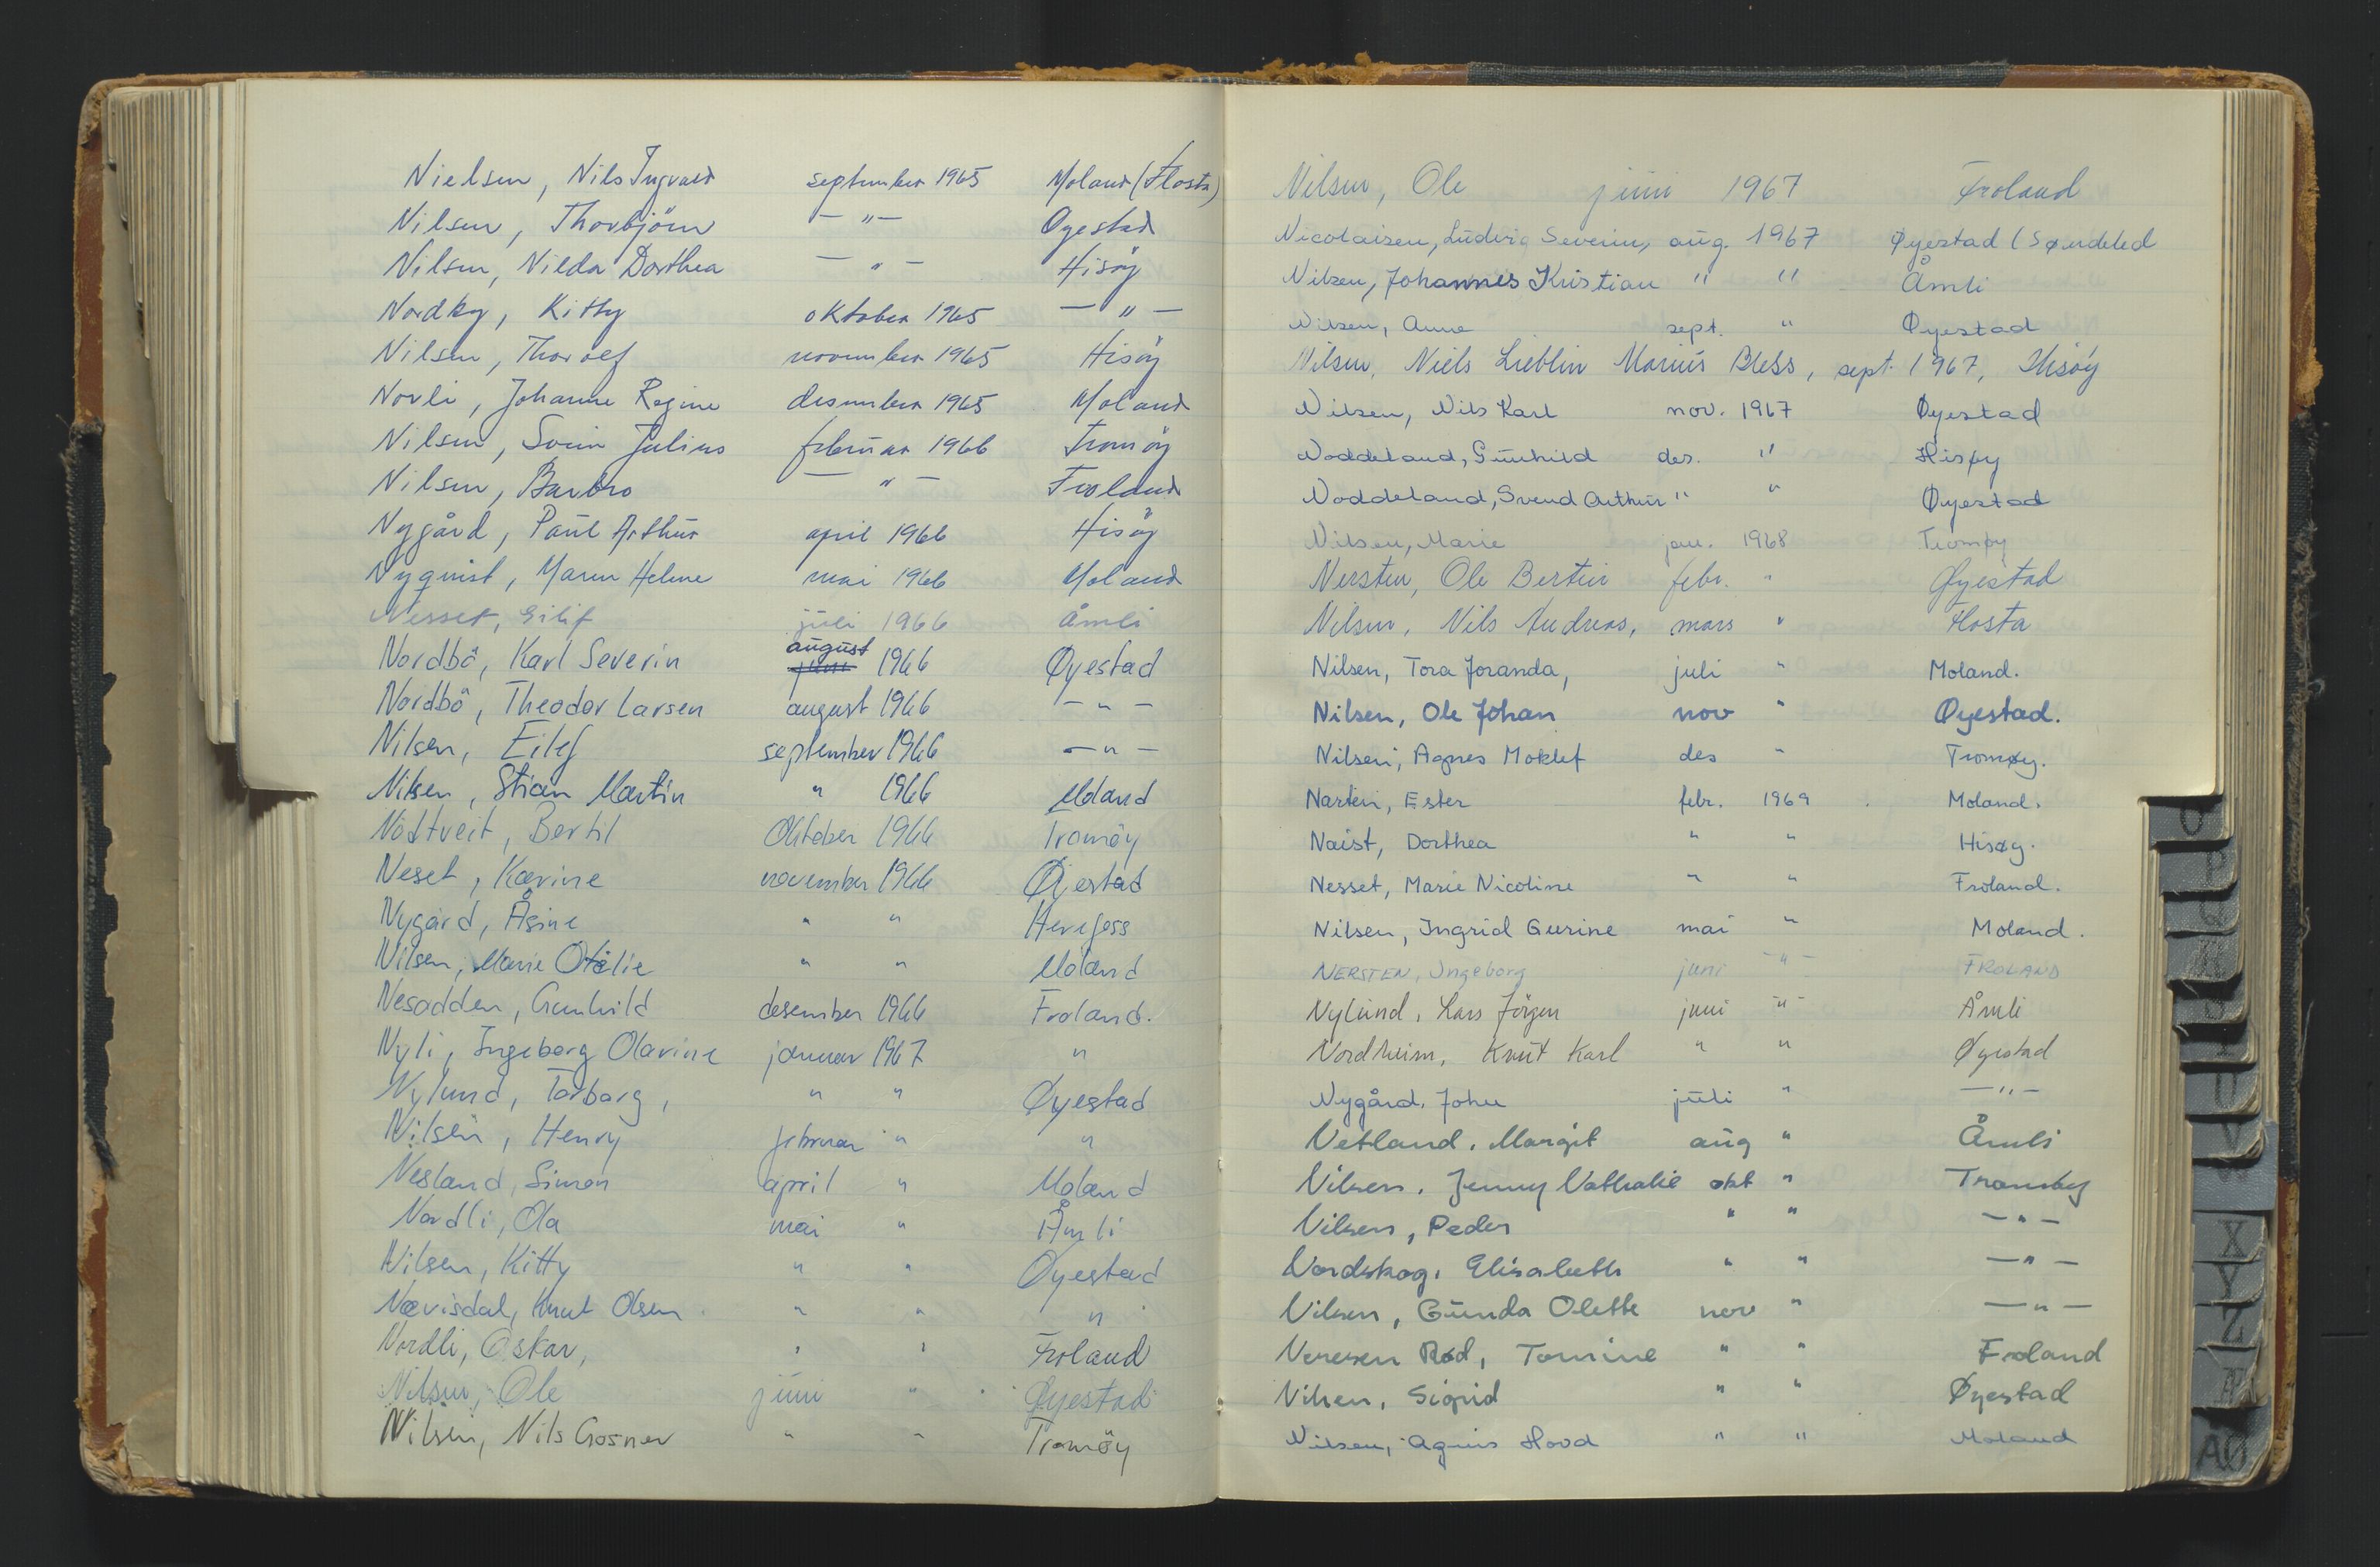 Nielsen, Nils Ingvald september 1965 Moland (Flosta)
Nilsen, Thorbjörn — " — Öyestad
Nilsen, Nilda Dorthea — " — Hisöy
Nordby, Kitty oktober 1965 — " —
Nilsen, Thorolf november 1965 Hisöy
Novli, Johanne Regine desember 1965 Moland
Nilsen, Svein Julius februar 1966 Tromöy
Nilsen, Barbro — " — Froland
Nygård, Paul Arthur april 1966 Hisöy
Nyquist, Maren Helene mai 1966 Moland
Nesset, Eilif juli 1966 Åmli
august
Nordbö, Karl Severin 1966 Øyestad
Nordbö, Theodor Larsen august 1966 — " —
Nilsen, Eilef september 1966 — " —
Nilsen, Stian Martin " 1966 Moland
Nödtveit, Bertil Oktober 1966 Tromöy
Neset, Karine november 1966 Øyestad
Nygård, Åsine " " Herefoss
Nilsen, Marie Otelie " " Moland
Nesodden, Gunhild desember 1966 Froland.
Nyli, Ingeborg Olavine januar 1967 "
Nylund, Torborg, " " Øyestad
Nilsen, Henry februar " "
Nesland, Simon april " Moland
Nordli, Ola mai " Åmli
Nilsen, Kitty " " Øyestad
Nævisdal, Knut Olsen " " "
Nordli, Oskar, " " Froland
Nilsen, Ole juni " Øyestad
Nilsen, Nils Gosner " " Tromöy
Nilsen, Ole juni 1967 Froland
Nicolaisen, Ludvig Severin, aug. 1967 Øyestad (Søndeled
Nilsen, Johannes Kristian " " Åmli
Nilsen, Anne sept. " Øyestad
Nilsen, Niels Lieblin Marius Bless, sept. 1967, Hisöy
Nilsen, Nils Karl nov. 1967 Øyestad
Noddeland, Gunhild des. " Hisøy
Noddeland, Svend Arthur " " Øyestad
Nilsen, Marie jan. 1968 Tromøy
Nersten, Ole Bertin febr. " Øyestad
Nilsen, Nils Andreas, mars " Flosta
Nilsen, Tora Joranda, juli " Moland.
Nilsen, Ole Johan nov " Øyestad.
Nilsen, Agnes Moklef des " Tromøy.
Narten, Ester febr. 1969 Moland.
Naist, Dorthea " " Hisøy.
Nesset, Marie Nicoline " " Froland.
Nilsen, Ingrid Gurine mai " Moland.
NERSTEN, Ingeborg juni — " — FROLAND
Nylund, Lars Jörgen juni — " — Åmli
Nordheim, Knut Karl " " Øyestad
Nygård, John juli " — " —
Netland, Margit aug " Åmli
Nilsen, Jenny Nathalie okt " Tromöy
Nilsen, Peder " " — " —
Nordskog, Elisabeth " " — " —
Nilsen, Gunda Olette nov " — " —
Rød, Tomine " " Froland
Nilsen, Sigrid " " Øyestad
Nilsen, Agnes Hovd " " Moland
O
P
Q
R
S
T
U
V
X
Y
Z
Æ
AØ